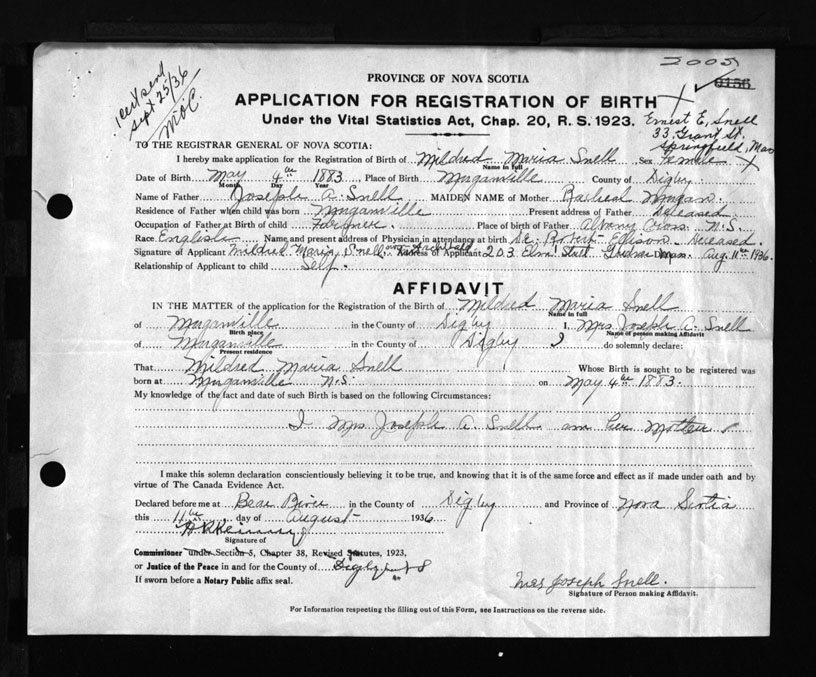 2005
0156
1 cert send
Sept 25/36
PROVINCE OF NOVA SCOTIA
APPLICATION FOR REGISTRATION OF BIRTH
Under the Vital Statistics Act, Chap. 20, R. S. 1923.
Ernest E. Snell
33 Grant St.
Springfield, Mass
TO THE REGISTRAR GENERAL OF NOVA SCOTIA:
I hereby make application for the Registration of Birth of Mildred Maria Snell Sex Female
Name in full
Date of Birth May 4th 1883 Place of Birth Morganville County of Digby
Month Day Year
Name of Father Joseph A. Snell MAIDEN NAME of Mother Morgan.
Residence of Father when child was born Morganville Present address of Father Deceased
Occupation of Father at Birth of child Farmer. Place of birth of Father Albany Cross N.S.
Race English Name and present address of Physician in attendance at birth Dr. Robert Ellison. Deceased.
Signature of Applicant Mildred Maria Snell now Archibald Address of Applicant 203 Elm Street Date Aug. 11th 1936.
Relationship of Applicant to child Self.
AFFIDAVIT
IN THE MATTER of the application for the Registration of the Birth of Mildred Maria Snell
Name in full
of Morganville in the County of Digby I, Mrs. Joseph A. Snell
Birth place Name of person making Affidavit
of Morganville in the County of Digby do solemnly declare:
Present residence
That Mildred Maria Snell Whose Birth is sought to be registered was
born at Morganville N.S. on May 4th 1883.
My knowledge of the fact and date of such Birth is based on the following Circumstances:
I Mrs Joseph A. Snell am her Mother
I make this solemn declaration conscientiously believing it to be true, and knowing that it is of the same force and effect as if made under oath and by
virtue of The Canada Evidence Act.
Declared before me at Bear River in the County of Digby and Province of Nova Scotia
this 11th day of August 1936
Signature of
Commissioner under Section 5, Chapter 38, Revised Statutes, 1923,
or Justice of the Peace in and for the County of Digby N S
If sworn before a Notary Public affix seal.
Mrs Joseph Snell.
Signature of Person making Affidavit.
For Information respecting the filling out of this Form, see Instructions on the reverse side.